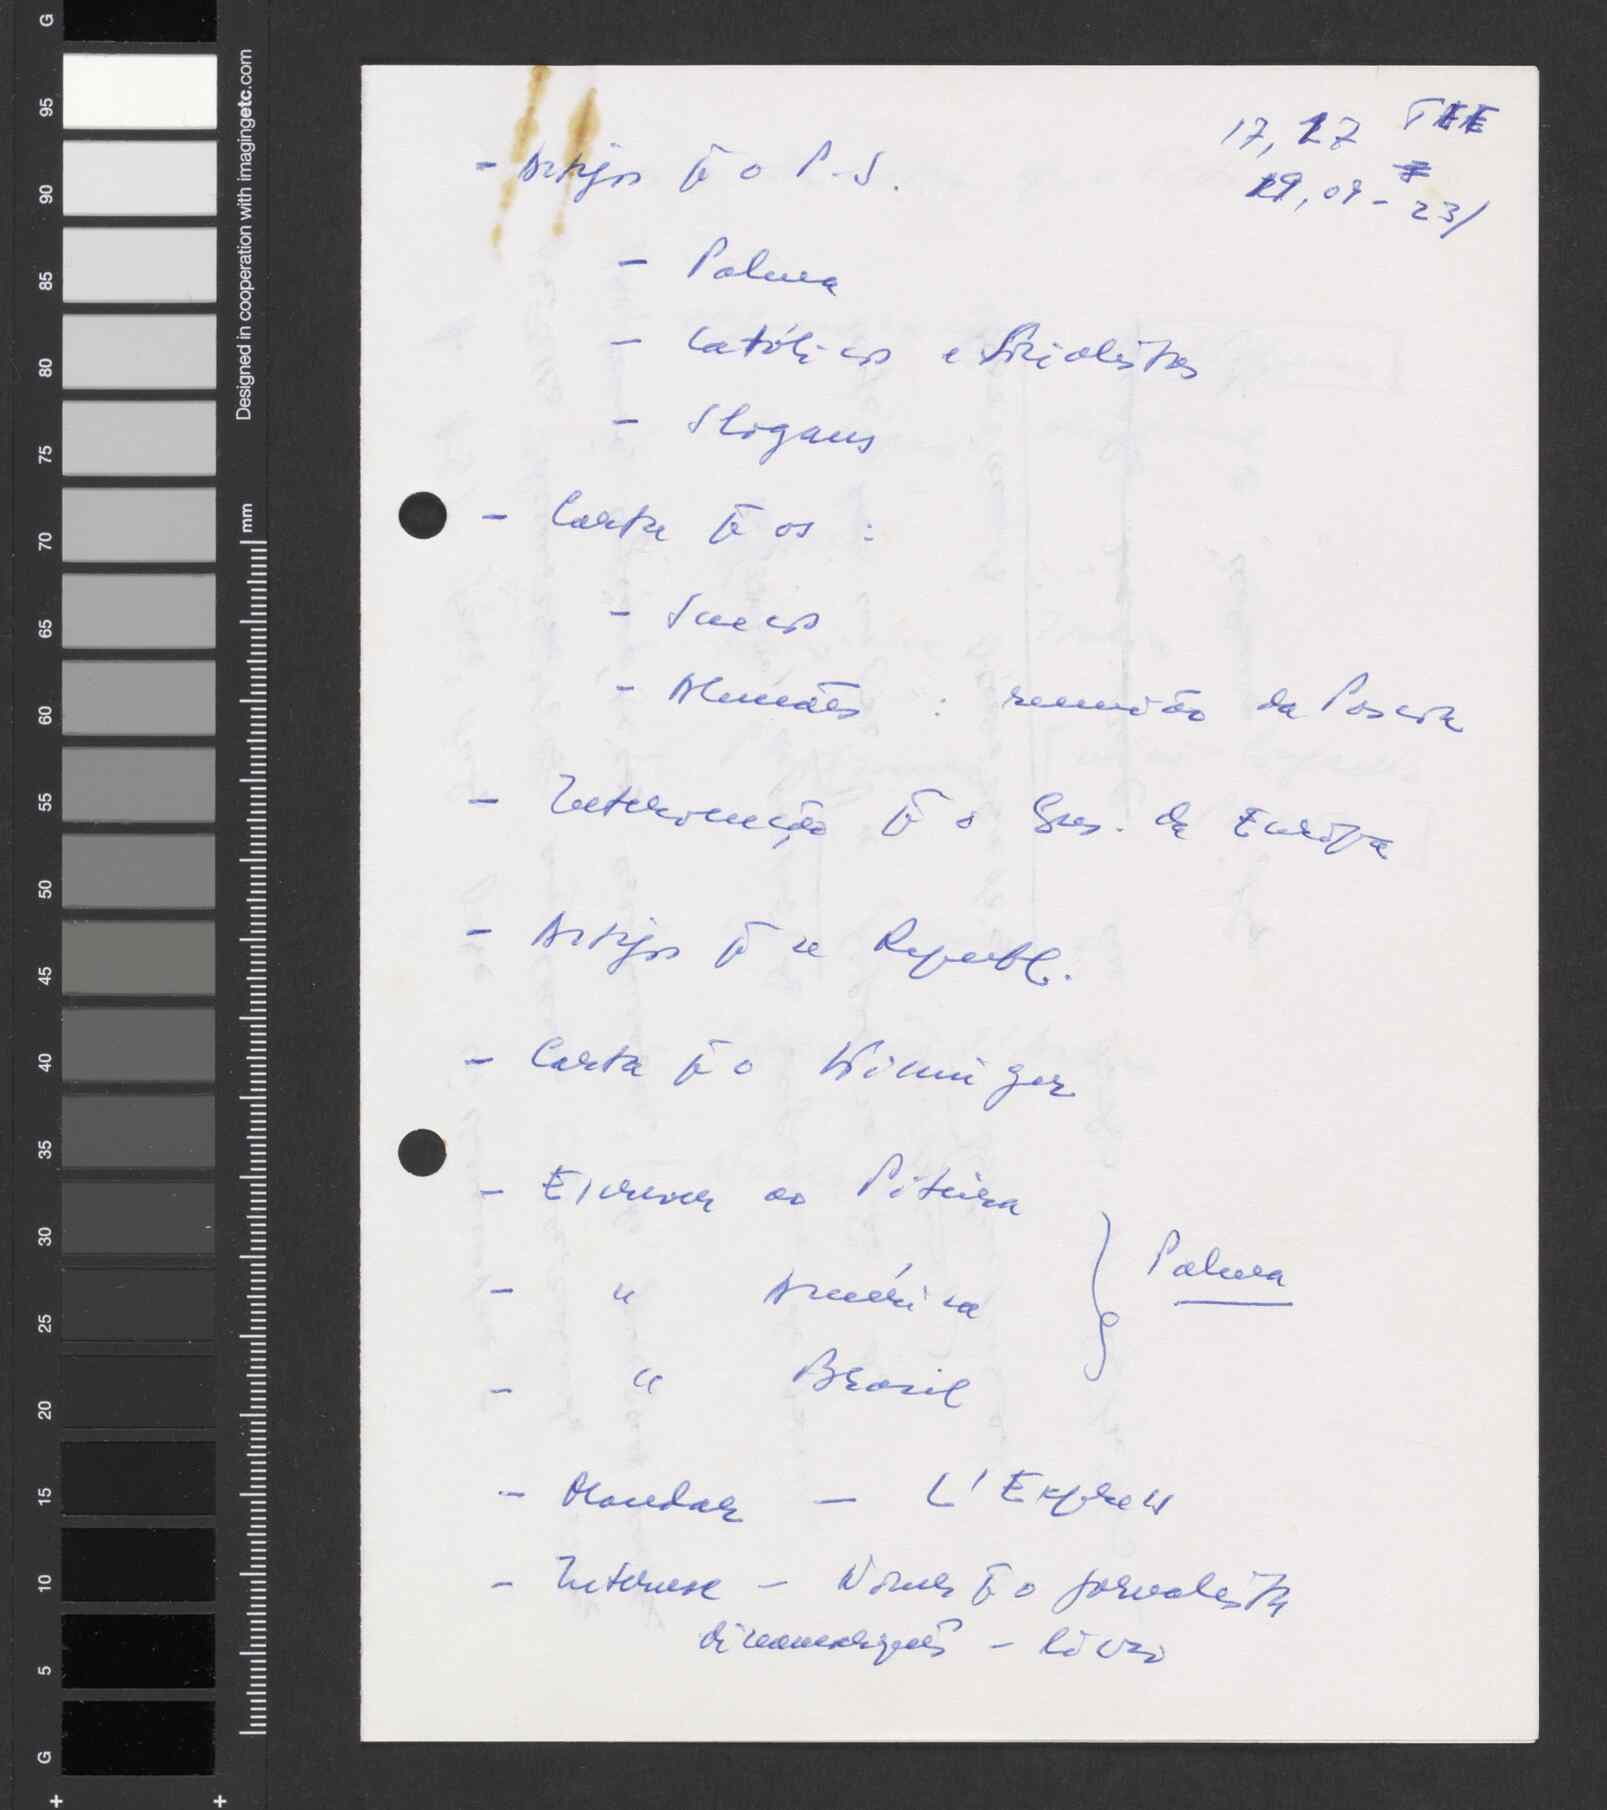 17,27 TEE
19,09 - 23/
- Artigos p̄ o P.S.
- Palma
- Católicos e Socialistas
- Slogans
- Carta p̄ os :
- Suecos
- Alemães : reunião da Páscoa
- Intervenção p̄ o Cons. da Europa
- Artigos p̄ a Republ.
- Carta p̄ o
- Escrever ao Piteira
- " América
- " Brasil
} Palma
- Mandar — L'Express
- Interesse - Nomes p̄ o jornalista
dinamarquês - livro
G
95
90
85
80
75
70
65
60
55
50
45
40
35
30
25
20
15
10
5
G
mm
Designed in cooperation with imagingetc.com